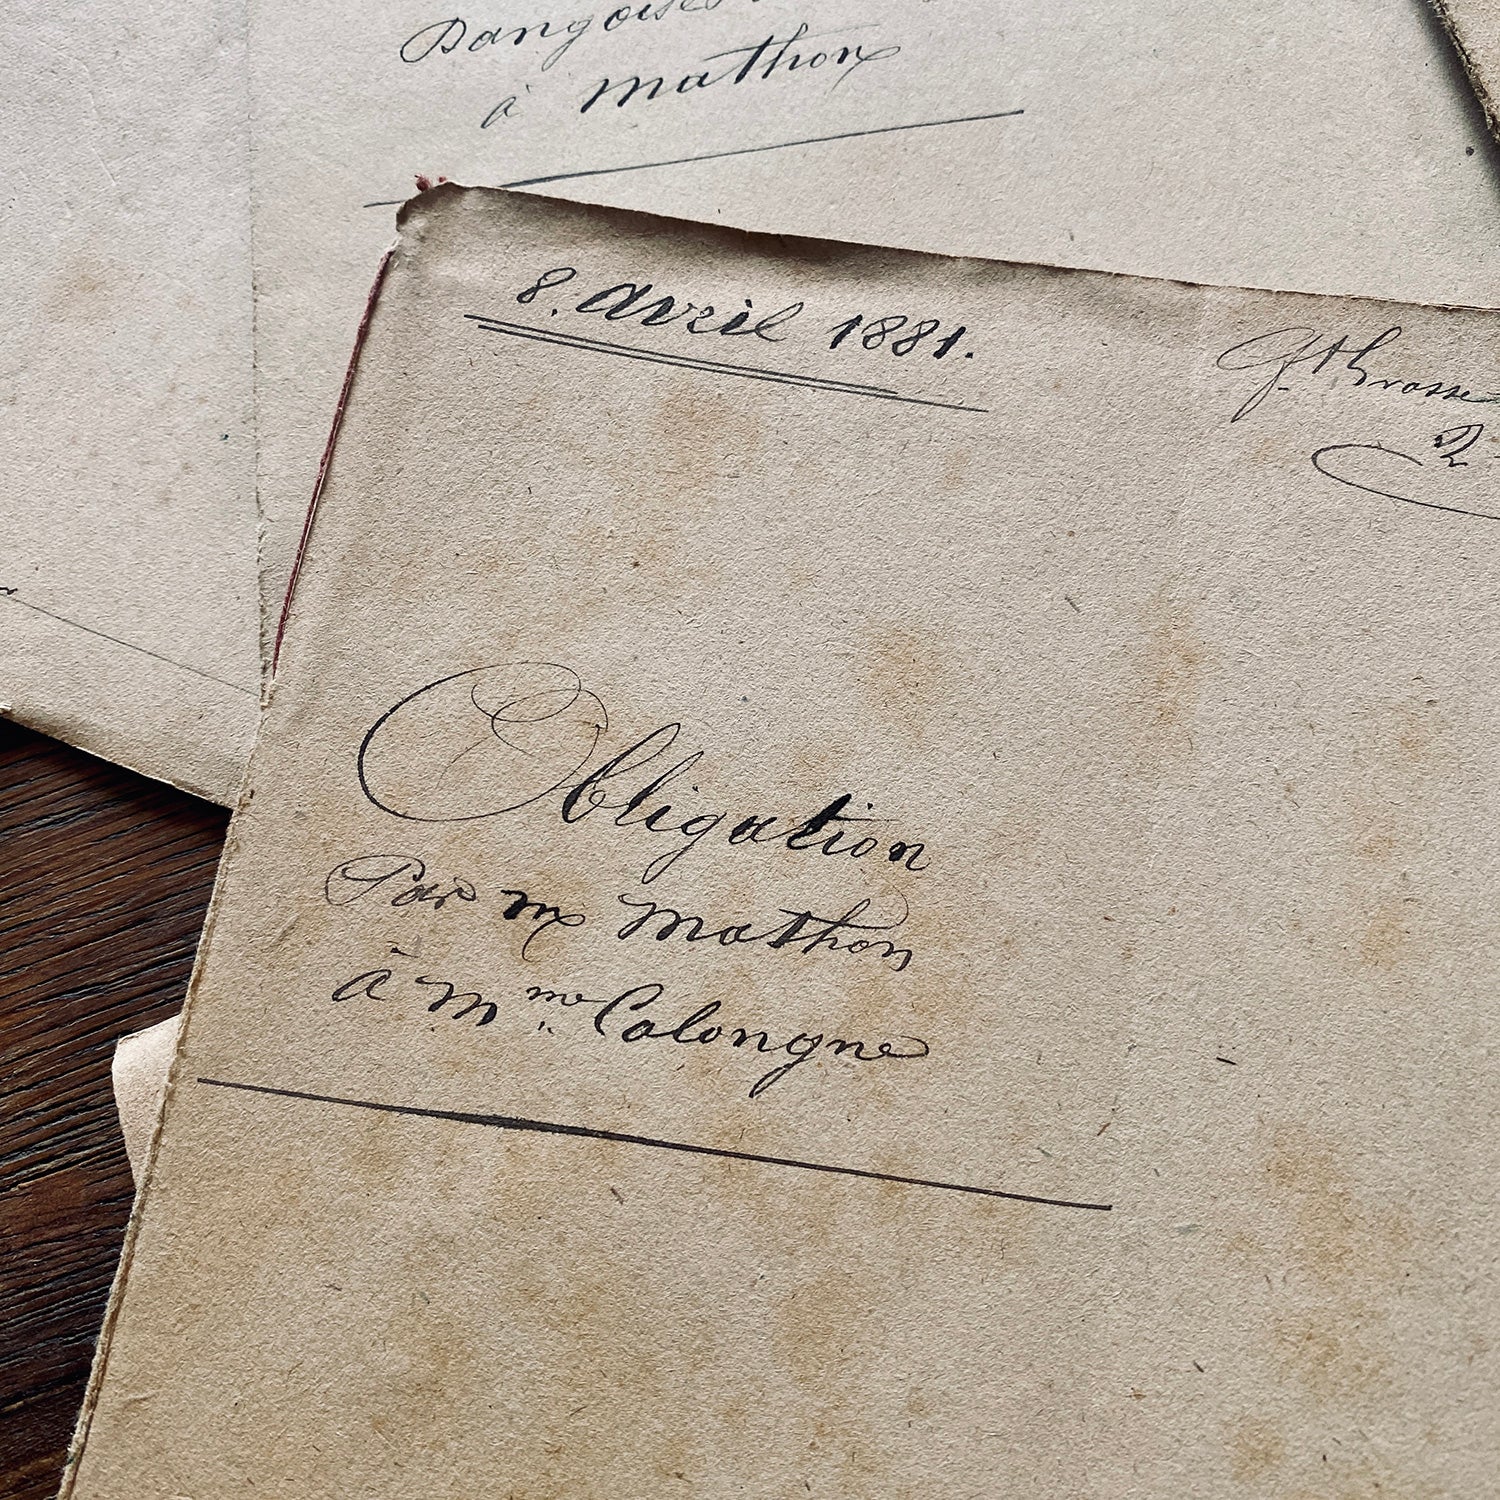 à Mathon
8. Avril 1881.
Gr. Grosse
Obligation
Par M Mathon
à M me Colongne